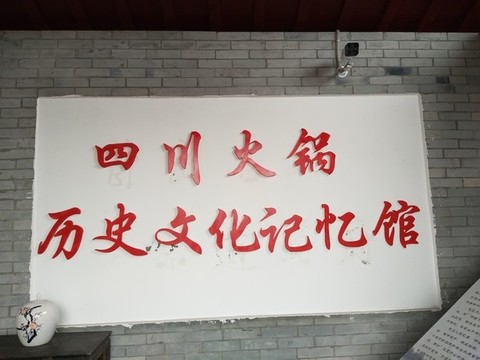 四川火锅
历史文化记忆馆